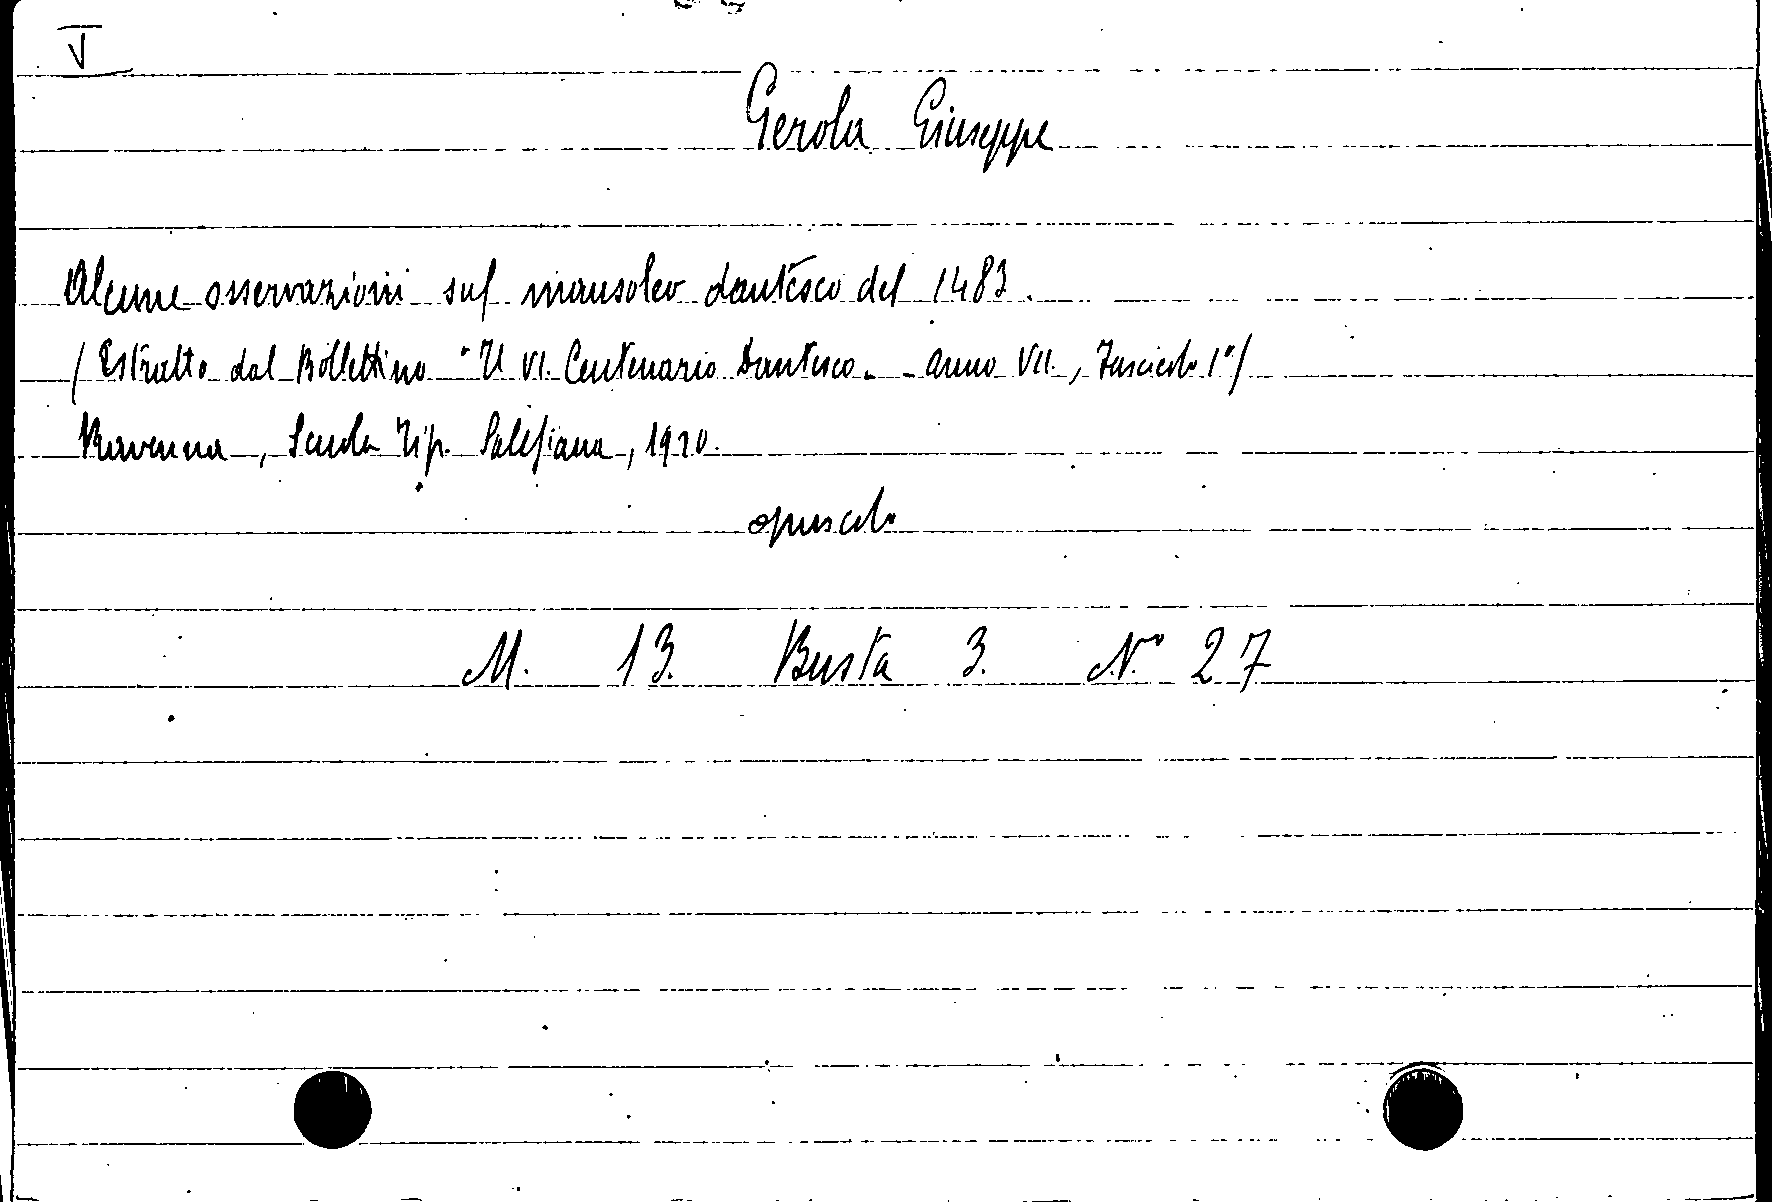 V
Gerola Giuseppe
Alcune osservazioni sul mausoleo dantesco del 1483.
(Estratto dal Bollettino "Il VI. Centenario Dantesco - anno VII., Fascicolo I°)
Ravenna, Scuola Tip. Salesiana, 1920.
opuscolo
M. 13. Busta 3. N° 27